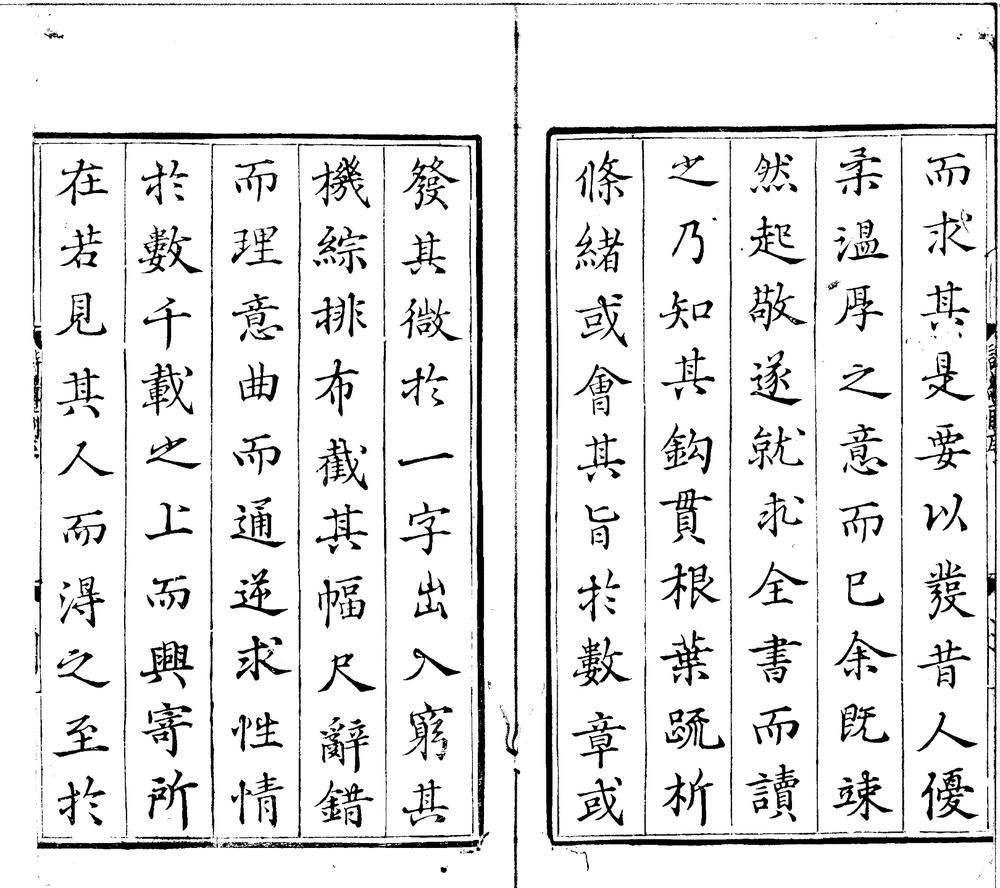 而求其是要以發昔人優
柔溫厚之意而已余既竦
然起敬遂就求全書而讀
之乃知其鈎貫根葉疏析
條緒或會其旨於數章或
發其微於一字出入窮其
機綜排布截其幅尺辭錯
而理意曲而通逆求性情
於數千載之上而興寄所
在若見其人而得之至於